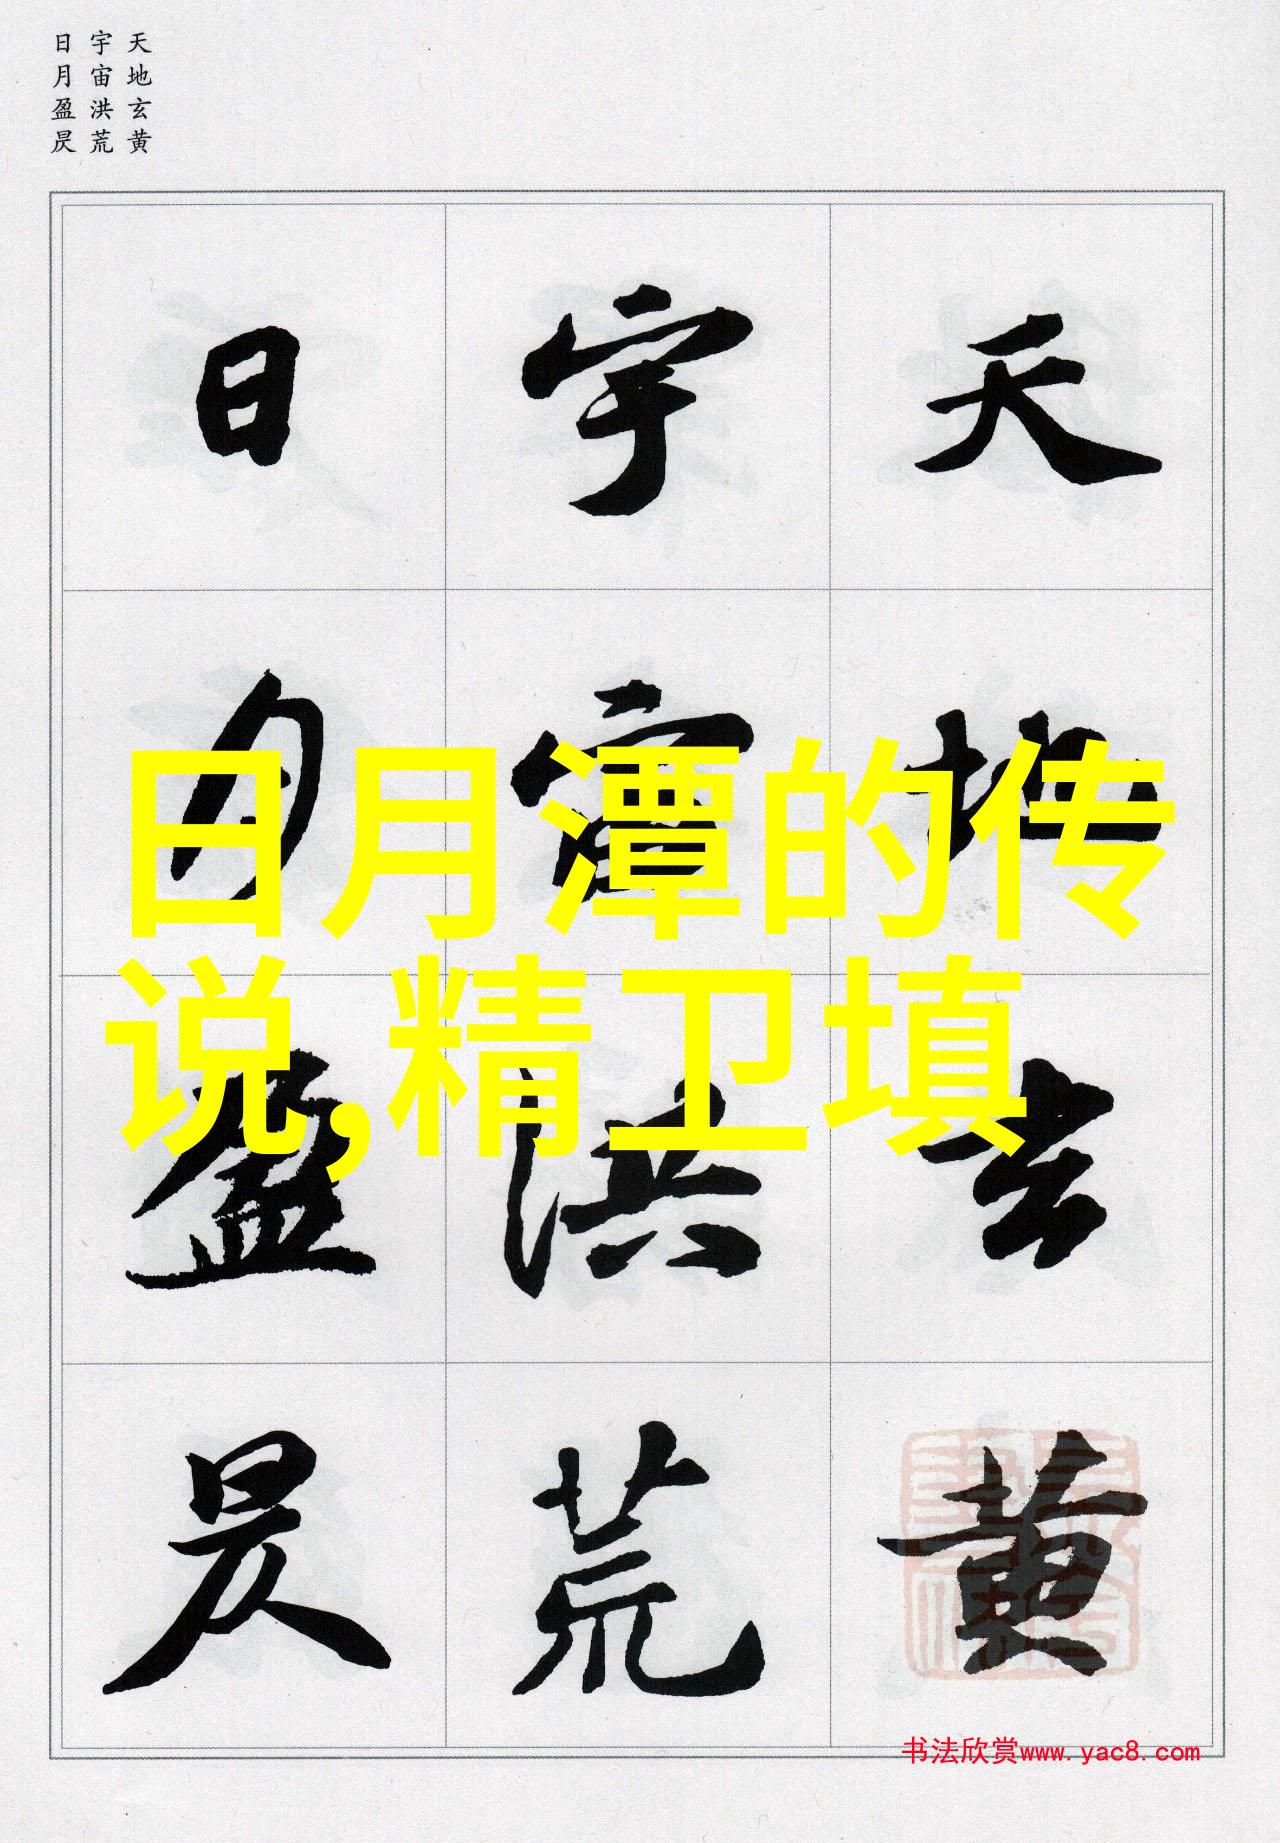 天地玄黄
宇宙洪荒
日月盈昃
天地玄黄
宇宙洪荒
日月盈昃
日月潭的传
说,精卫填
书法欣赏www.yac8.com